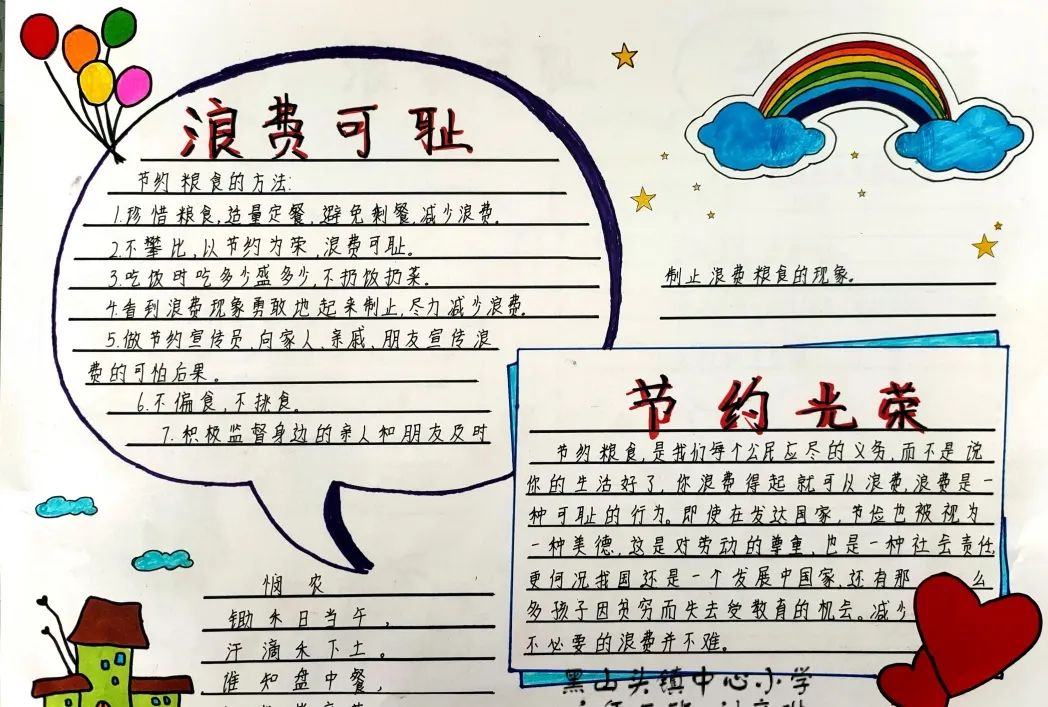 浪费可耻
节约粮食的方法:
1.珍惜粮食,适量定餐,避免剩餐,减少浪费。
2.不攀比,以节约为荣,浪费可耻。
3.吃饭时吃多少盛多少,不扔饭扔菜。
4.看到浪费现象勇敢地起来制止,尽力减少浪费。
5.做节约宣传员,向家人、亲戚、朋友宣传浪
费的可怕后果。
6.不偏食,不挑食。
7.积极监督身边的亲人和朋友及时
制止浪费粮食的现象。
节约光荣
节约粮食,是我们每个公民应尽的义务,而不是说
你的生活好了,你浪费得起就可以浪费,浪费是一
种可耻的行为。即使在发达国家,节俭也被视为
一种美德,这是对劳动的尊重,也是一种社会责任
更何况我国还是一个发展中国家,还有那 么
多孩子因贫穷而失去受教育的机会。减少
不必要的浪费并不难。
悯农
锄禾日当午,
汗滴禾下土。
谁知盘中餐,
黑山头镇中心小学